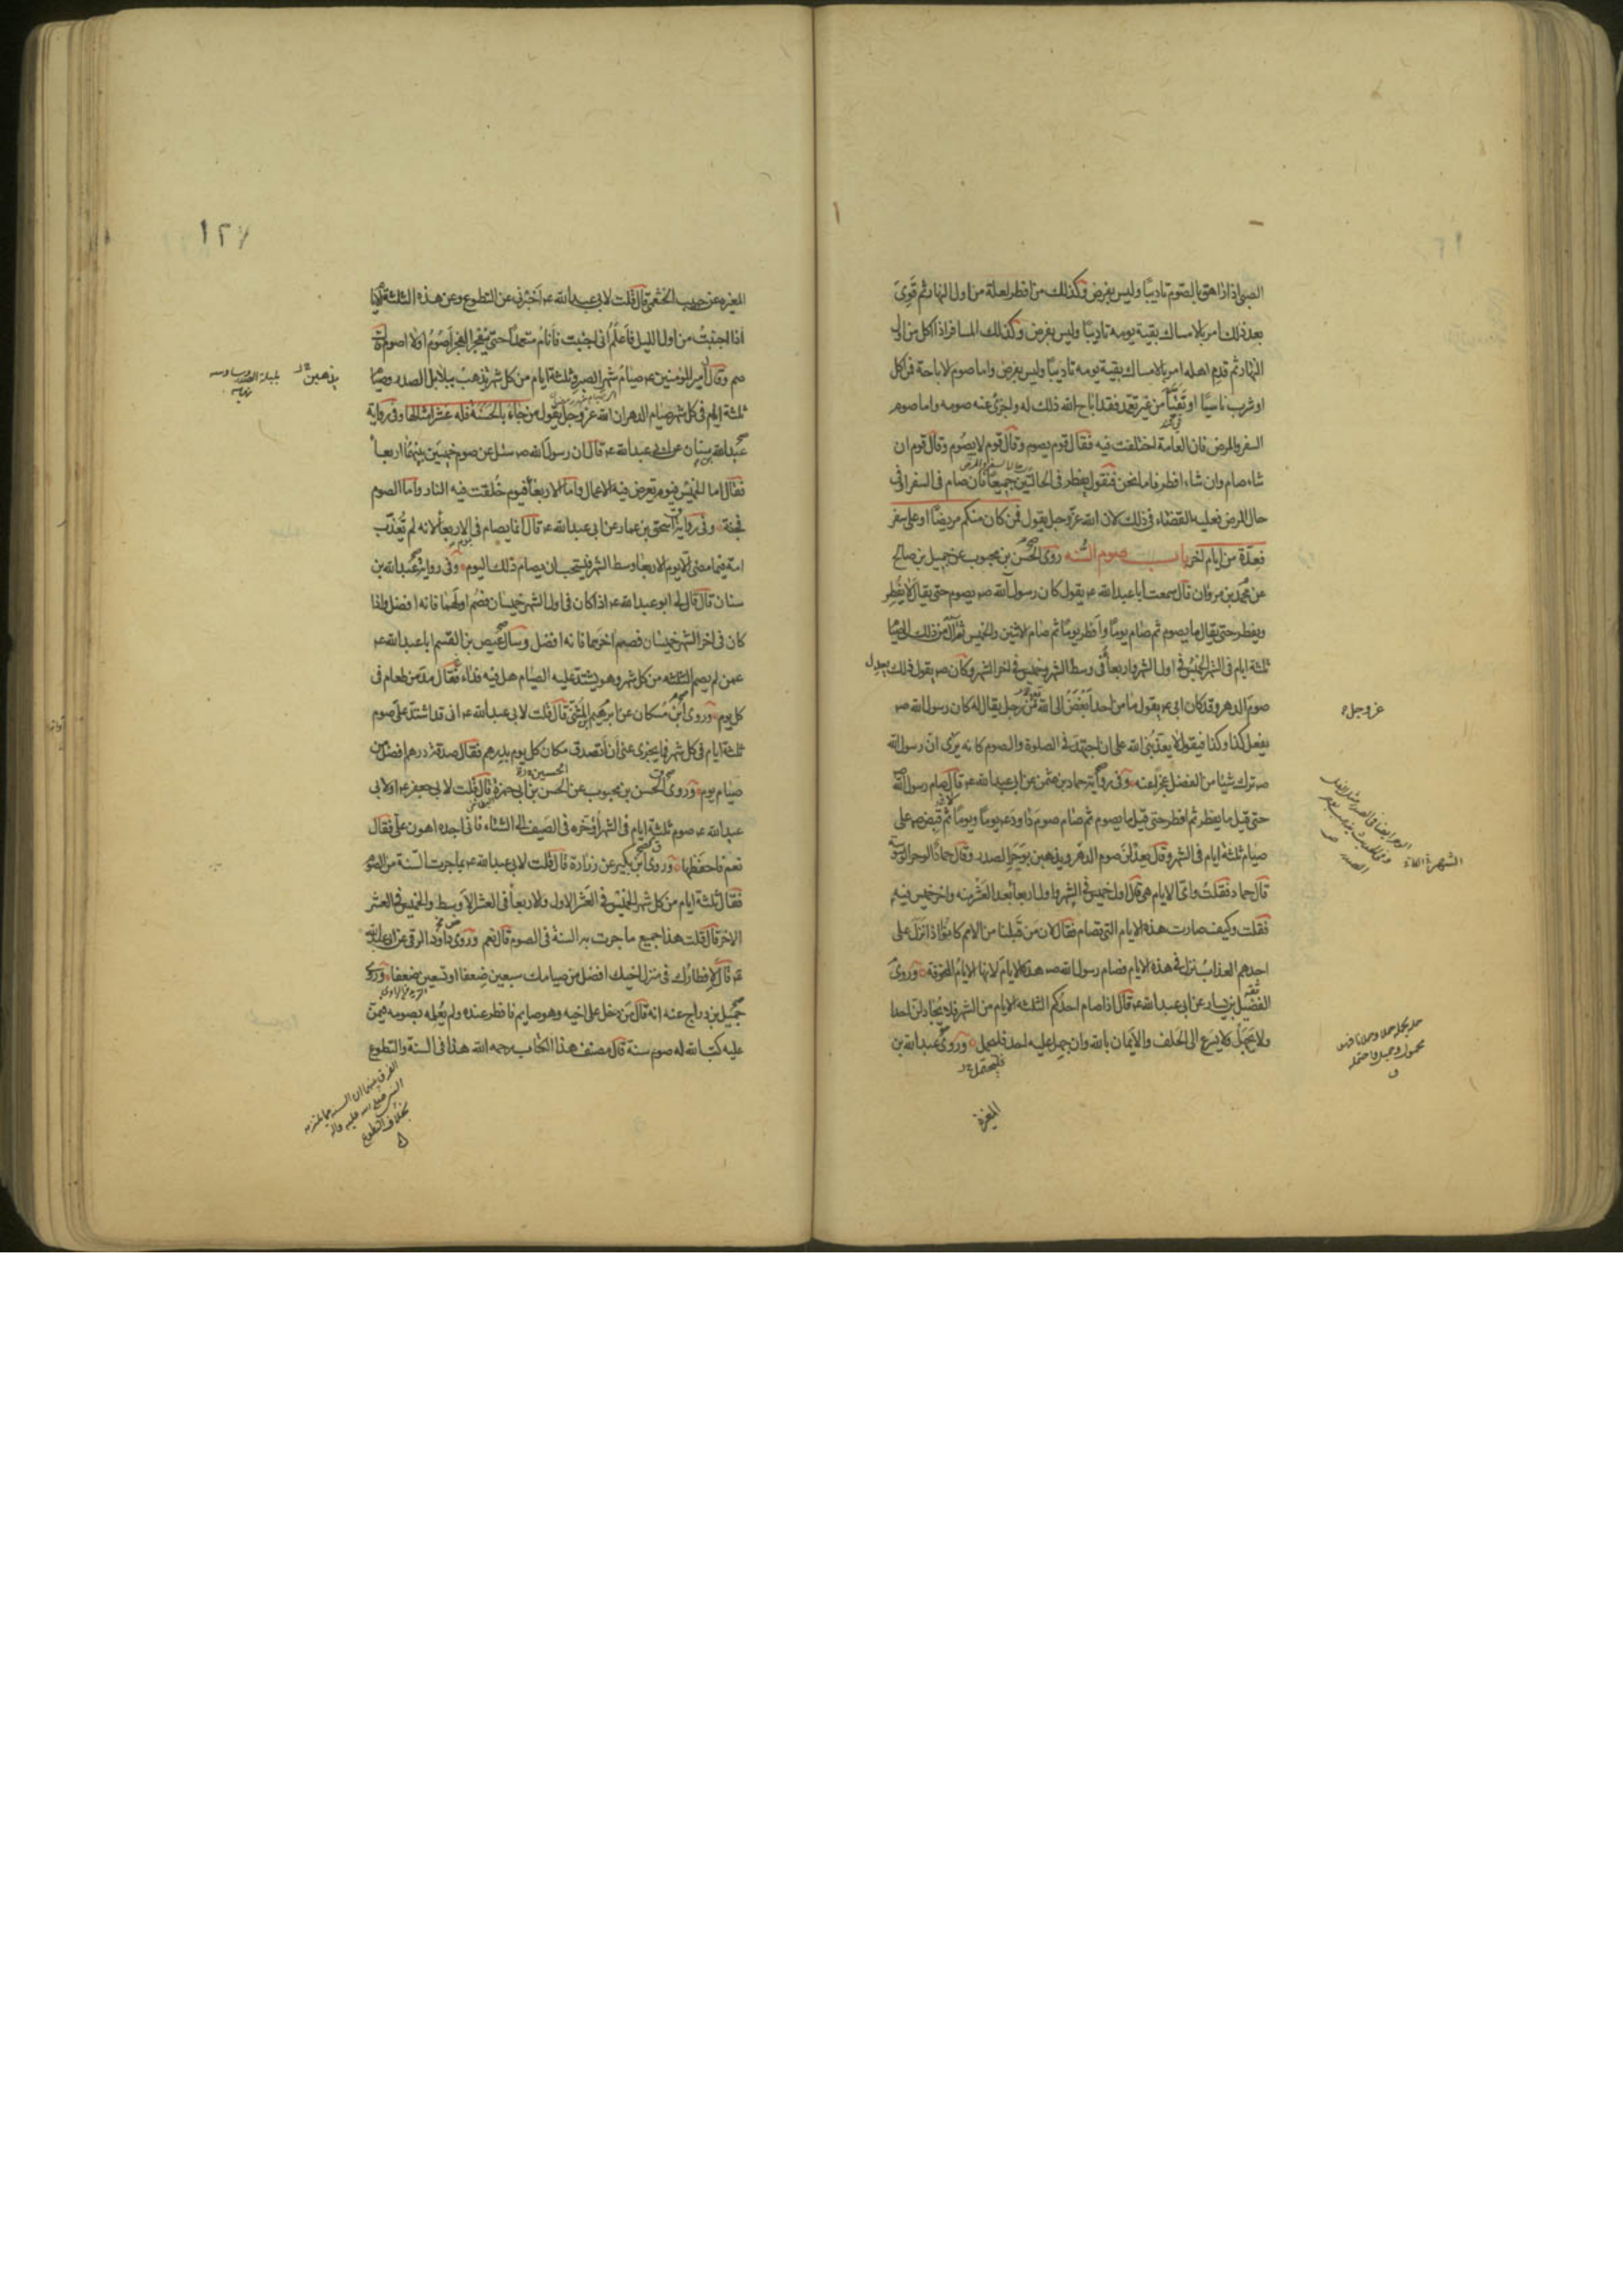 الصبى اذا راهق بالصوم تاديبًا وليس بفرض وكذلك من افطر لعلة من اول النهار ثم قوى
بعد ذلك امر بالامساك بقية يومه تاديبًا وليس بفرض وكذلك المسافر اذا اكل من اول
النهار ثم قدم اهله امر بالامساك بقية يومه تاديبًا وليس بفرض واما صوم الاباحة فمن اكل
او شرب ناسيًا او تقيّأ من غير تعمد فقد اباح الله ذلك له واجزئ عنه صومه واما صوم
السفر والمرض فان العامة اختلفت فيه فقال قوم يصوم وقال قوم لا يصوم وقال قوم ان
شاء صام وان شاء افطر فاما نحن فنقول يفطر فى الحالتين جميعًا فان صام فى السفر او فى
حال المرض فعليه القضاء فى ذلك لان الله عز وجل يقول فمن كان منكم مريضًا او على سفر
فعدّة من ايام اخر باب صوم السُّنه روى الحسن بن محبوب عن جميل بن صالح
عن محمد بن مروان قال سمعت ابا عبد الله ع يقول كان رسول الله ص يصوم حتى يقال لا يفطر
ويفطر حتى يقال ما يصوم ثم صام يومًا وافطر يومًا ثم صام الاثنين والخميس ثم آل من ذلك الى صيام
ثلثة ايام فى الشهر الخميس فى اول الشهر واربعاء فى وسط الشهر وخميس فى اخر الشهر وكان ص يقول ذلك يعدل
صوم الدهر وقد كان ابى ع يقول ما من احد ابغض الى الله من رجل يقال له كان رسول الله ص
عز وجل
يفعل كذا وكذا فيقول لا يعذّبنى الله على ان اجتهد فى الصلوة والصوم كانه يرى ان رسول الله
ص ترك شيئا من الفضل عجزًا عنه وفى رواية حماد بن عثمن عن ابى عبد الله ع قال صام رسول الله ص
حتى قيل ما يفطر ثم افطر حتى قيل ما يصوم ثم صام صوم داود ع يومًا ويومًا لا ثم قبض ص على
صيام ثلثة ايام فى الشهر وقال يعدلن صوم الدهر ويذهبن بوحر الصدر وقال حماد الوحر الوسوسة
قال حماد فقلت واىّ الايام هى قال اول خميس فى الشهر واول اربعاء بعد العشر منه واخر خميس فيه
فقلت وكيف صارت هذه الايام التى تصام فقال لان من قبلنا من الامم كانوا اذا نزل على
احدهم العذاب نزل فى هذه الايام فصام رسول الله ص هذه الايام لانها الايام المخوفة وروى
الفضيل بن يسار عن ابى عبد الله ع قال اذا صام احدكم الثلثة الايام من الشهر فلا يجادلن احدا
ولا يجهل ولا يسرع الى الحلف والايمان بالله وان جهل عليه احد فليحمل وروى عبد الله بن
فليحتمل
المغيرة
١٢٧
المغيره عن حبيب الخثعمى قال قلت لابى عبد الله ع اخبرنى عن التطوع وعن هذه الثلثة الايام
اذا اجنبت من اول الليل فاعلم انى اجنبت فانام متعمدًا حتى ينفجر الفجر اصوم اولا اصوم قال
صم وقال امير المؤمنين ع صيام شهر الصبر وثلثة ايام من كل شهر يذهب ببلابل الصدر وصيام
يذهبن
ثلثة ايام فى كل شهر صيام الدهر ان الله عز وجل يقول من جاء بالحسنة فله عشر امثالها وفى رواية
عبد الله بن سنان عن ابى عبد الله ع قال ان رسول الله ص سئل عن صوم خميسين بينهما اربعاء
فقال اما الخميس فيوم تعرض فيه الاعمال واما الاربعاء فيوم خلقت فيه النار واما الصوم
فجنة وفى رواية اسحق بن عمار عن ابى عبد الله ع قال انما يصام فى يوم الاربعاء لانه لم تعذب
امة فيما مضى الا يوم الاربعاء وسط الشهر فيستحب ان يصام ذلك اليوم وفى رواية عبد الله بن
سنان قال قال لى ابو عبد الله ع اذا كان فى اول الشهر خميسان فصم اولهما فانه افضل واذا
كان فى اخر الشهر خميسان فصم اخرهما فانه افضل وسال عيص بن القسم ابا عبد الله ع
عمن لم يصم الثلثه من كل شهر وهو يشتد عليه الصيام هل فيه فداء فقال مد من طعام فى
كل يوم وروى ابن مسكان عن ابرهيم بن المثنى قال قلت لابى عبد الله ع انى قد اشتد على صوم
ثلثة ايام فى كل شهر فما يجزى عنى ان اتصدق مكان كل يوم بدرهم فقال صدقة درهم افضل من
صيام يوم وروى الحسن بن محبوب عن الحسن بن ابى حمزة قال قلت لابى جعفر ع او لابى
عبد الله ع صوم ثلثة ايام فى الشهر اؤخره فى الصيف الى الشتاء فانى اجده اهون على فقال
نعم فاحفظها وروى ابن بكير عن زرارة قال قلت لابى عبد الله ع بما جرت السنة من الصوم
فقال ثلثة ايام من كل شهر الخميس فى العشر الاول والاربعاء فى العشر الاوسط والخميس فى العشر
الاخر قال قلت هذا جميع ما جرت به السنة فى الصوم قال نعم وروى داود الرقى عن ابى عبد الله
ع قال لافطارك فى منزل اخيك افضل من صيامك سبعين ضعفا او تسعين ضعفا وروى
جميل بن دراج عنه انه قال من دخل على اخيه وهو صايم فافطر عنده ولم يعلمه بصومه فيمن
عليه كتب الله له صوم سنة قال مصنف هذا الكتاب رحمه الله هذا فى السنة والتطوع